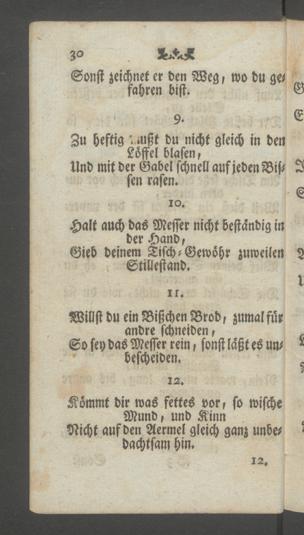 30
Sonst zeichnet er den Weg, wo du ge-
fahren bist.
9.
Zu heftig mußt du nicht gleich in den
Löffel blasen,
Und mit der Gabel schnell auf jeden Bis-
sen rasen.
10.
Halt auch das Messer nicht beständig in
der Hand,
Gieb deinem Tisch-Gewöhr zuweilen
Stillestand.
11.
Willst du ein Bißchen Brod, zumal für
andre schneiden,
So sey das Messer rein, sonst läßt es un-
bescheiden.
12.
Kömmt dir was fettes vor, so wische
Mund, und Kinn
Nicht auf den Aermel gleich ganz unbe-
dachtsam hin.
12.